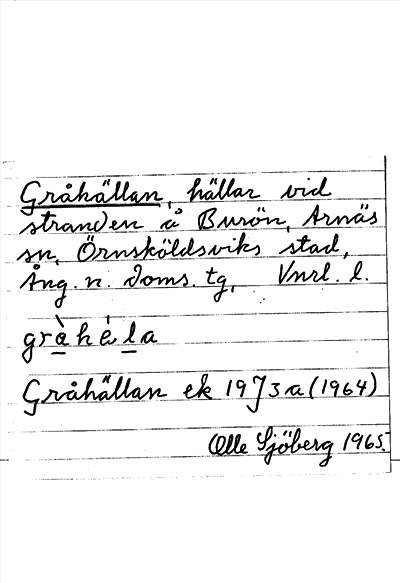 Gråhällan, hällar vid
stranden å Burön, Arnäs
sn, Örnsköldsviks stad,
Ång. n. doms. tg, Vnrl. l.
gràhéla
Gråhällan ek 19J3a (1964)
Olle Sjöberg 1965.